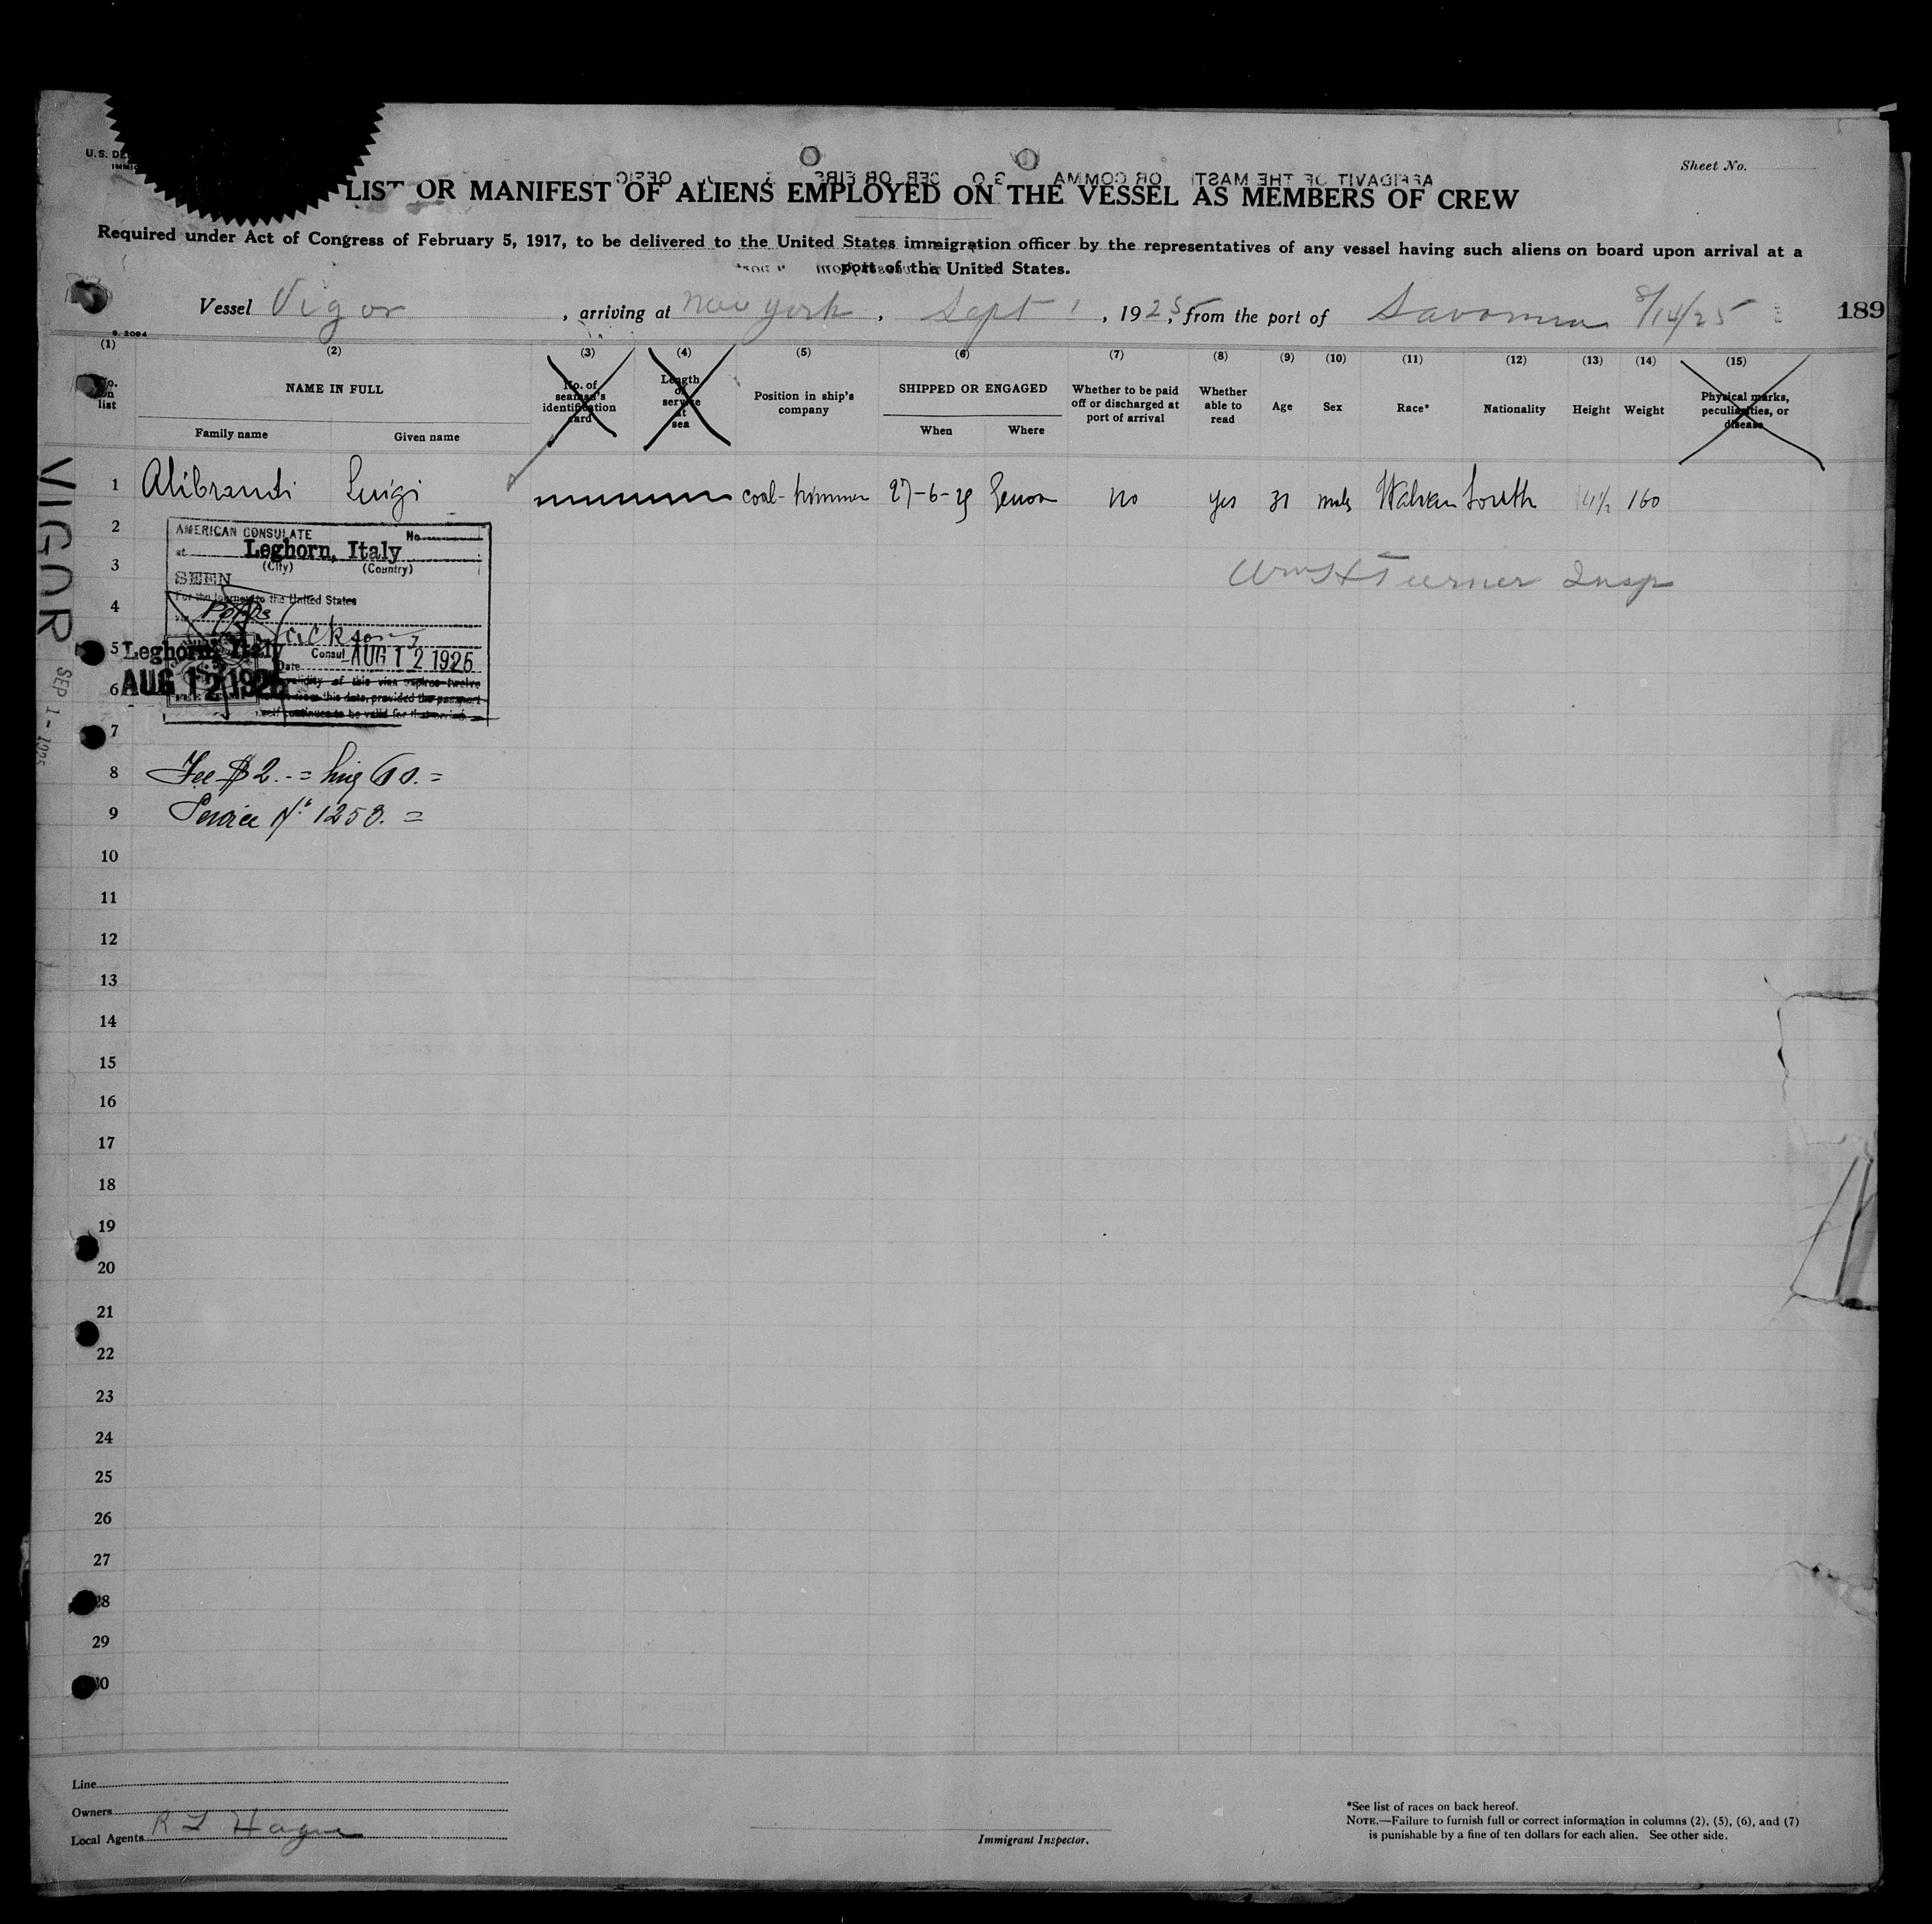 U.S. DE
IMMIG
Sheet No.
AFFIDAVIT OF THE MAST OR COMMA
LIST OR MANIFEST OF ALIENS EMPLOYED ON THE VESSEL AS MEMBERS OF CREW
Required under Act of Congress of February 5, 1917, to be delivered to the United States immigration officer by the representatives of any vessel having such aliens on board upon arrival at a
port of the United States.
Vessel Vigor, arriving at New York, Sept 1, 1925, from the port of Savona 8/14/25 189
S. 2094
(1) (2) (3) (4) (5) (6) (7) (8) (9) (10) (11) (12) (13) (14) (15)
No. on list
NAME IN FULL
Family name Given name
No. of seaman's identification card
Length of service at sea
Position in ship's company
SHIPPED OR ENGAGED
When Where
Whether to be paid off or discharged at port of arrival
Whether able to read
Age
Sex
Race*
Nationality
Height
Weight
Physical marks, peculiarities, or disease
1 Alibrandi Luigi coal-trimmer 27-6-25 Genoa no yes 31 male Italian South 160
2
3
4
5
6
7
8
9
10
11
12
13
14
15
16
17
18
19
20
21
22
23
24
25
26
27
28
29
30
Wm H Turner Insp
AMERICAN CONSULATE No
at Leghorn, Italy
(City) (Country)
SEEN
For the journey to the United States
Jackson
Consul
Date AUG 12 1925
validity of this visa expires twelve
from this date, provided the passport
self continues to be valid for that period.
Leghorn, Italy
AUG 12 1925
Fee $2.-=
Service Nº 1253.=
VIGOR
SEP 1-1925
Line
Owners
Local Agents R L Hague
Immigrant Inspector.
*See list of races on back hereof.
NOTE.—Failure to furnish full or correct information in columns (2), (5), (6), and (7)
is punishable by a fine of ten dollars for each alien. See other side.